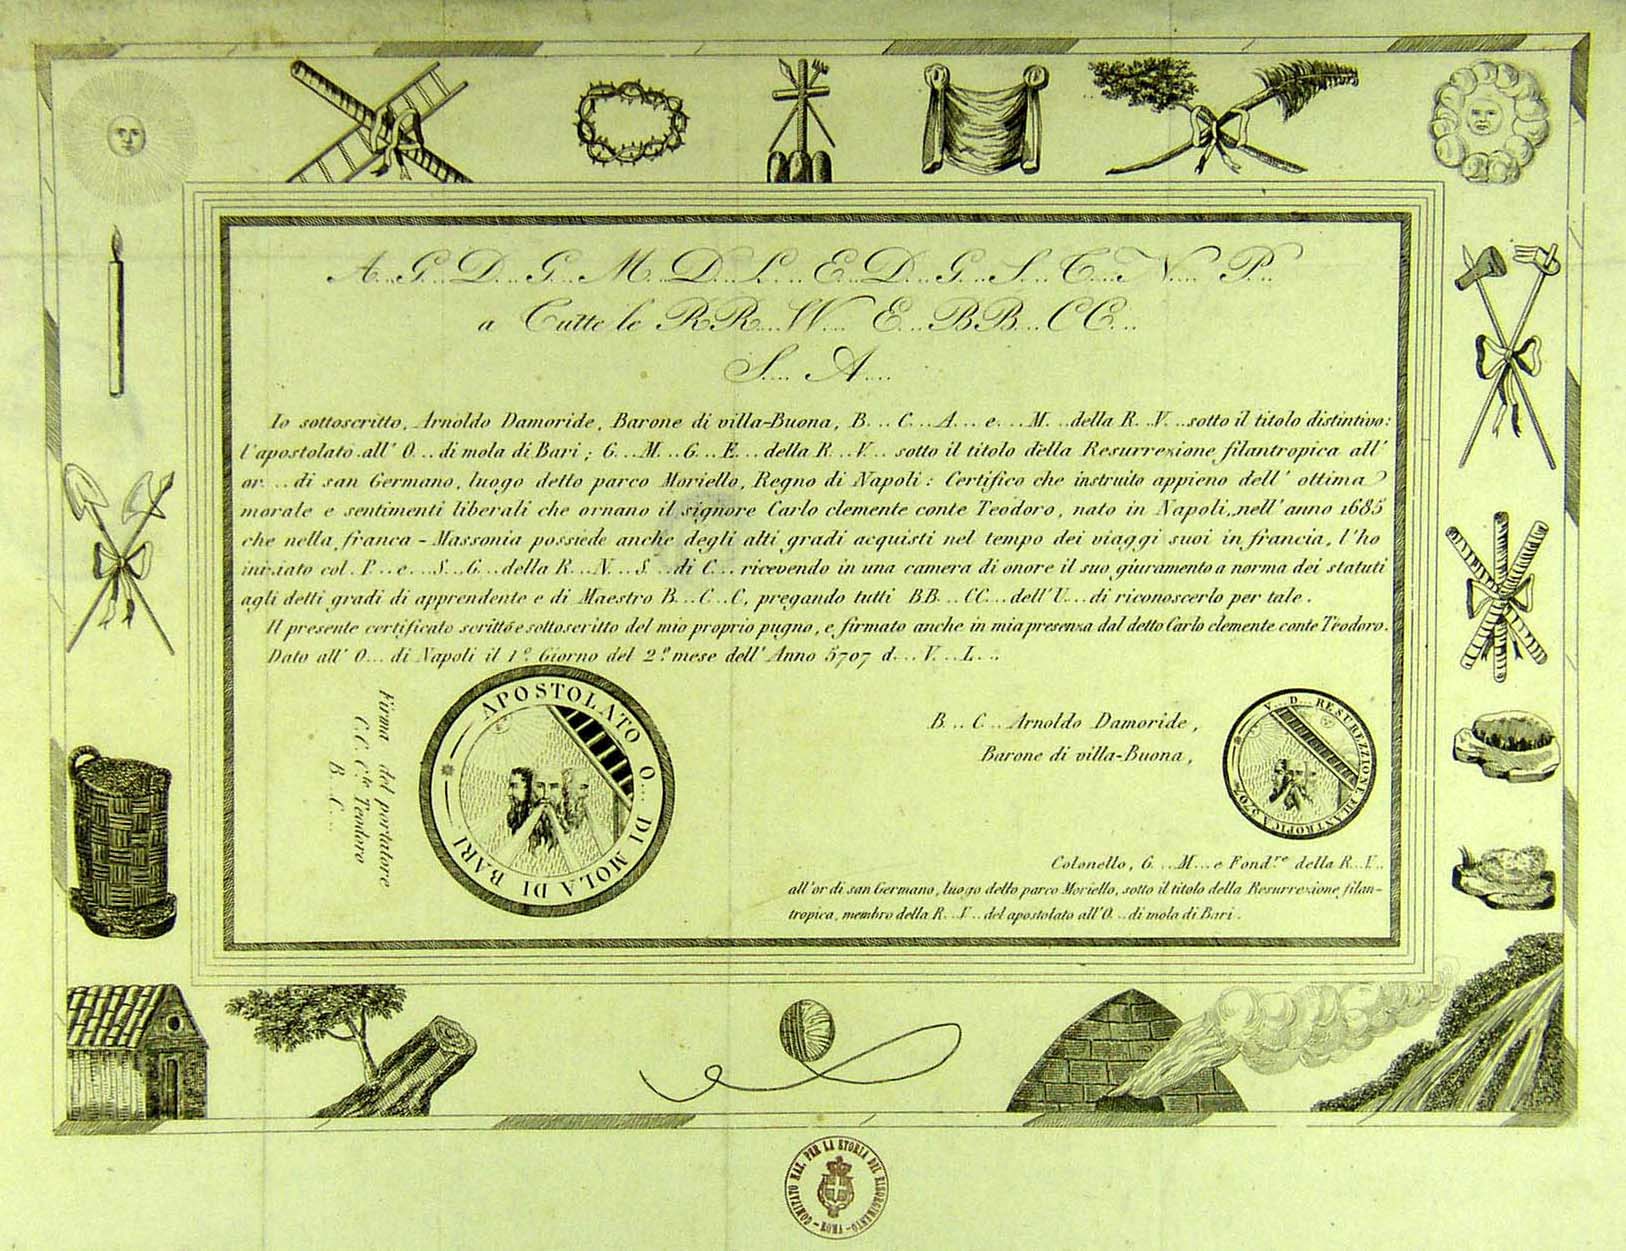 A... G... D... G... M... D... L... E... D... G... S... C... N... P...
a Tutte le RR... VV... E... BB... CC...
S.... A....
Io sottoscritto, Arnoldo Damoride, Barone di villa-Buona, B... C... A... e... M... della R... V... sotto il titolo distintivo:
l'apostolato all' O... di mola di Bari; G... M... G... E... della R... V... sotto il titolo della Resurrexione filantropica all'
or... di san Germano, luogo detto parco Moriello, Regno di Napoli: Certifico che instruito appieno dell' ottima
morale e sentimenti liberali che ornano il signore Carlo clemente conte Teodoro, nato in Napoli, nell' anno 1685
che nella franca-Massonia possiede anche degli alti gradi acquisti nel tempo dei viaggi suoi in francia, l'ho
iniziato col. P... e... S... G... della R... N... S... di C... ricevendo in una camera di onore il suo giuramento a norma dei statuti
agli detti gradi di apprendente e di Maestro B... C... C, pregando tutti BB... CC... dell'U... di riconoscerlo per tale.
Il presente certificato scritto e sottoscritto del mio proprio pugno, e firmato anche in mia presenza dal detto Carlo clemente conte Teodoro.
Dato all' O... di Napoli il 1.º Giorno del 2.º mese dell' Anno 5707 d... V... L...
Firma del portatore
C. C. C.te Teodoro
B... C...
APOSTOLATO O... DI MOLA DI BARI
B... C... Arnoldo Damoride,
Barone di villa-Buona,
V... D... RESUREZZIONE FILANTROPICA 5707
Colonello, G... M... e Fond.re della R... V...
all'or di san Germano, luogo detto parco Moriello, sotto il titolo della Resurrexione filan-
tropica, membro della R... V... del apostolato all'O... di mola di Bari.
COMITATO NAZ. PER LA STORIA DEL RISORGIMENTO - ROMA -